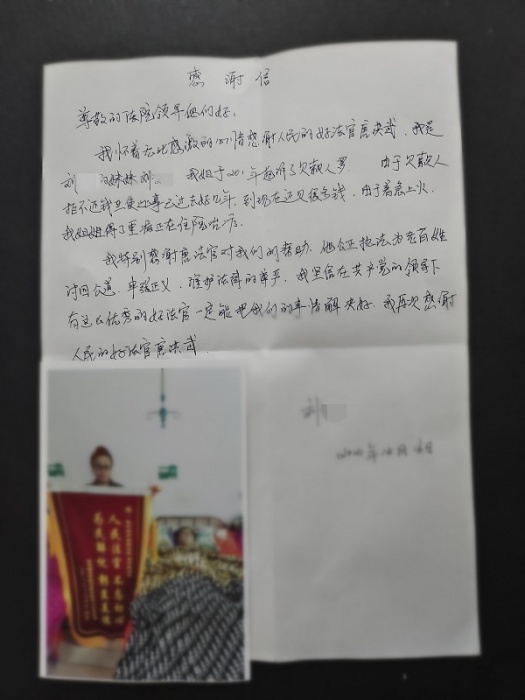 感谢信
尊敬的法院领导你们好。
我怀着无比感激的心情感谢人民的好法官唐洪武，我是
刘 的妹妹刘 我姐于 年起诉了欠款人罗 由于欠款人
拒不还钱且使此事已过去好几年，到现在还欠很多钱，由于着急上火，
我姐姐得了重病正在住院治疗。
我特别感谢唐法官对我们的帮助，他公正执法为老百姓
讨回公道，牢张正义，维护法律的尊严，我坚信在共产党的领导下
有这么优秀的好法官一定能把我们的事情解决好。我再次感谢
人民的好法官唐洪武。
刘
年12月 日
人民法官 不忘初心
为民解忧